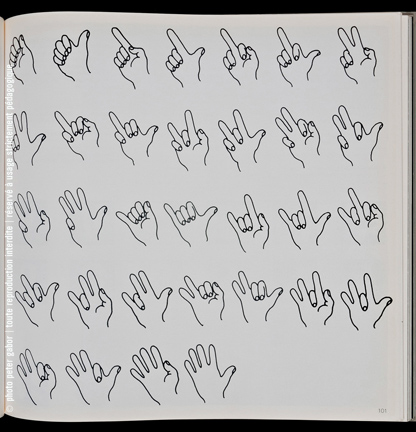 © photo peter gabor | toute reproduction interdite | réservé à usage strictement pédagogique
101